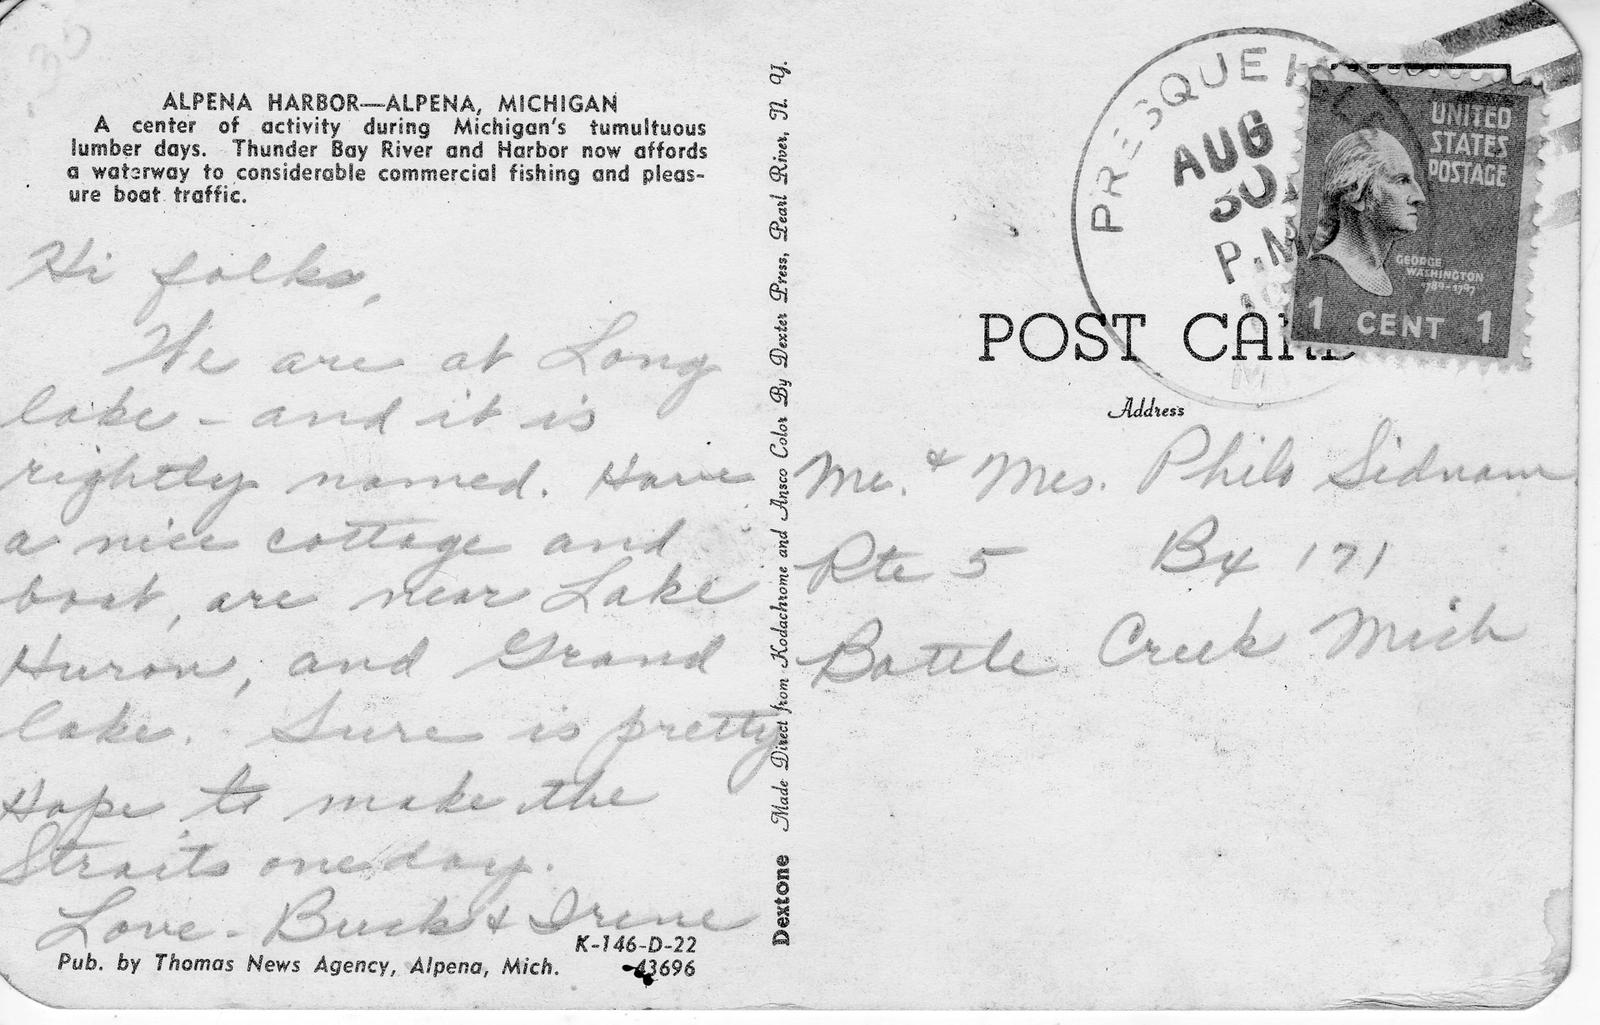 .30
ALPENA HARBOR—ALPENA, MICHIGAN
A center of activity during Michigan's tumultuous
lumber days. Thunder Bay River and Harbor now affords
a waterway to considerable commercial fishing and pleas-
ure boat traffic.
Hi folks,
We are at Long
lake - and it is
rightly named. Have
a nice cottage and
boat, are near Lake
Huron, and Grand
lake. Sure is pretty
Hope to make the
Straits one day.
Love - Buck & Irene
K-146-D-22
Pub. by Thomas News Agency, Alpena, Mich.
43696
Dextone Made Direct from Kodachrome and Ansco Color By Dexter Press, Pearl River, N. Y.
PRESQUE
AUG
30
P.M
UNITED
STATES
POSTAGE
GEORGE
WASHINGTON
1789-1797
1 CENT 1
POST CARD
Address
Mr. & Mrs. Philo Sidnam
Rte 5 Bx 171
Battle Creek Mich